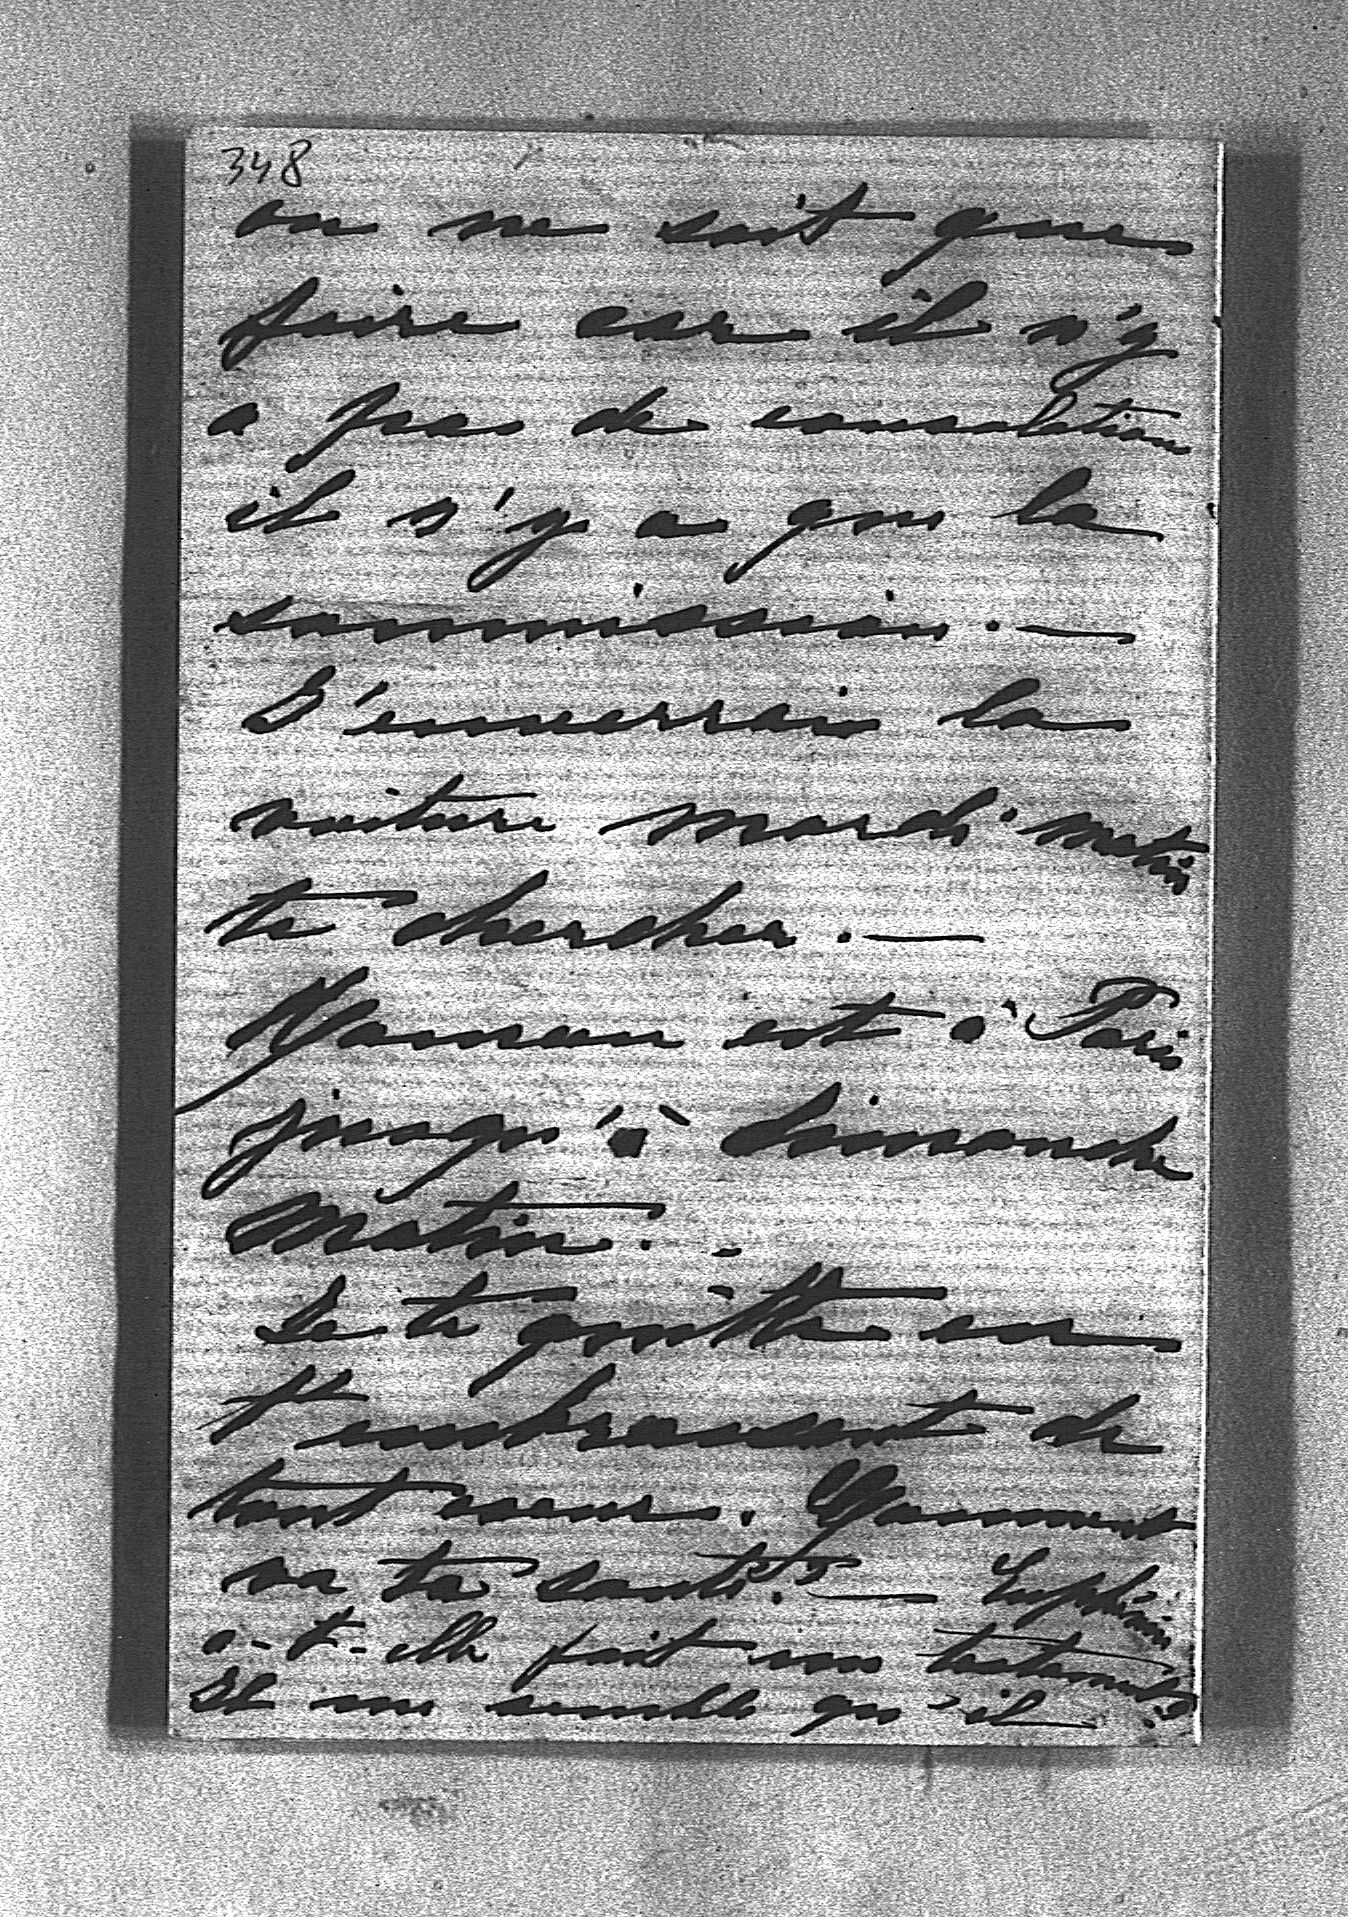 348
on ne sait que
faire car il n'y
a pas de consolation
il n'y a que la
soummission. —
J'enverrais la
voiture mardi matin
te chercher. —
Maman est à Paris
jusqu'à dimanche
Matin. -
Je te quitte en
t'embrassant de
tout coeur. Comment
va ta santé? —
a-t-elle fait un testament?
Il me semble qu'il